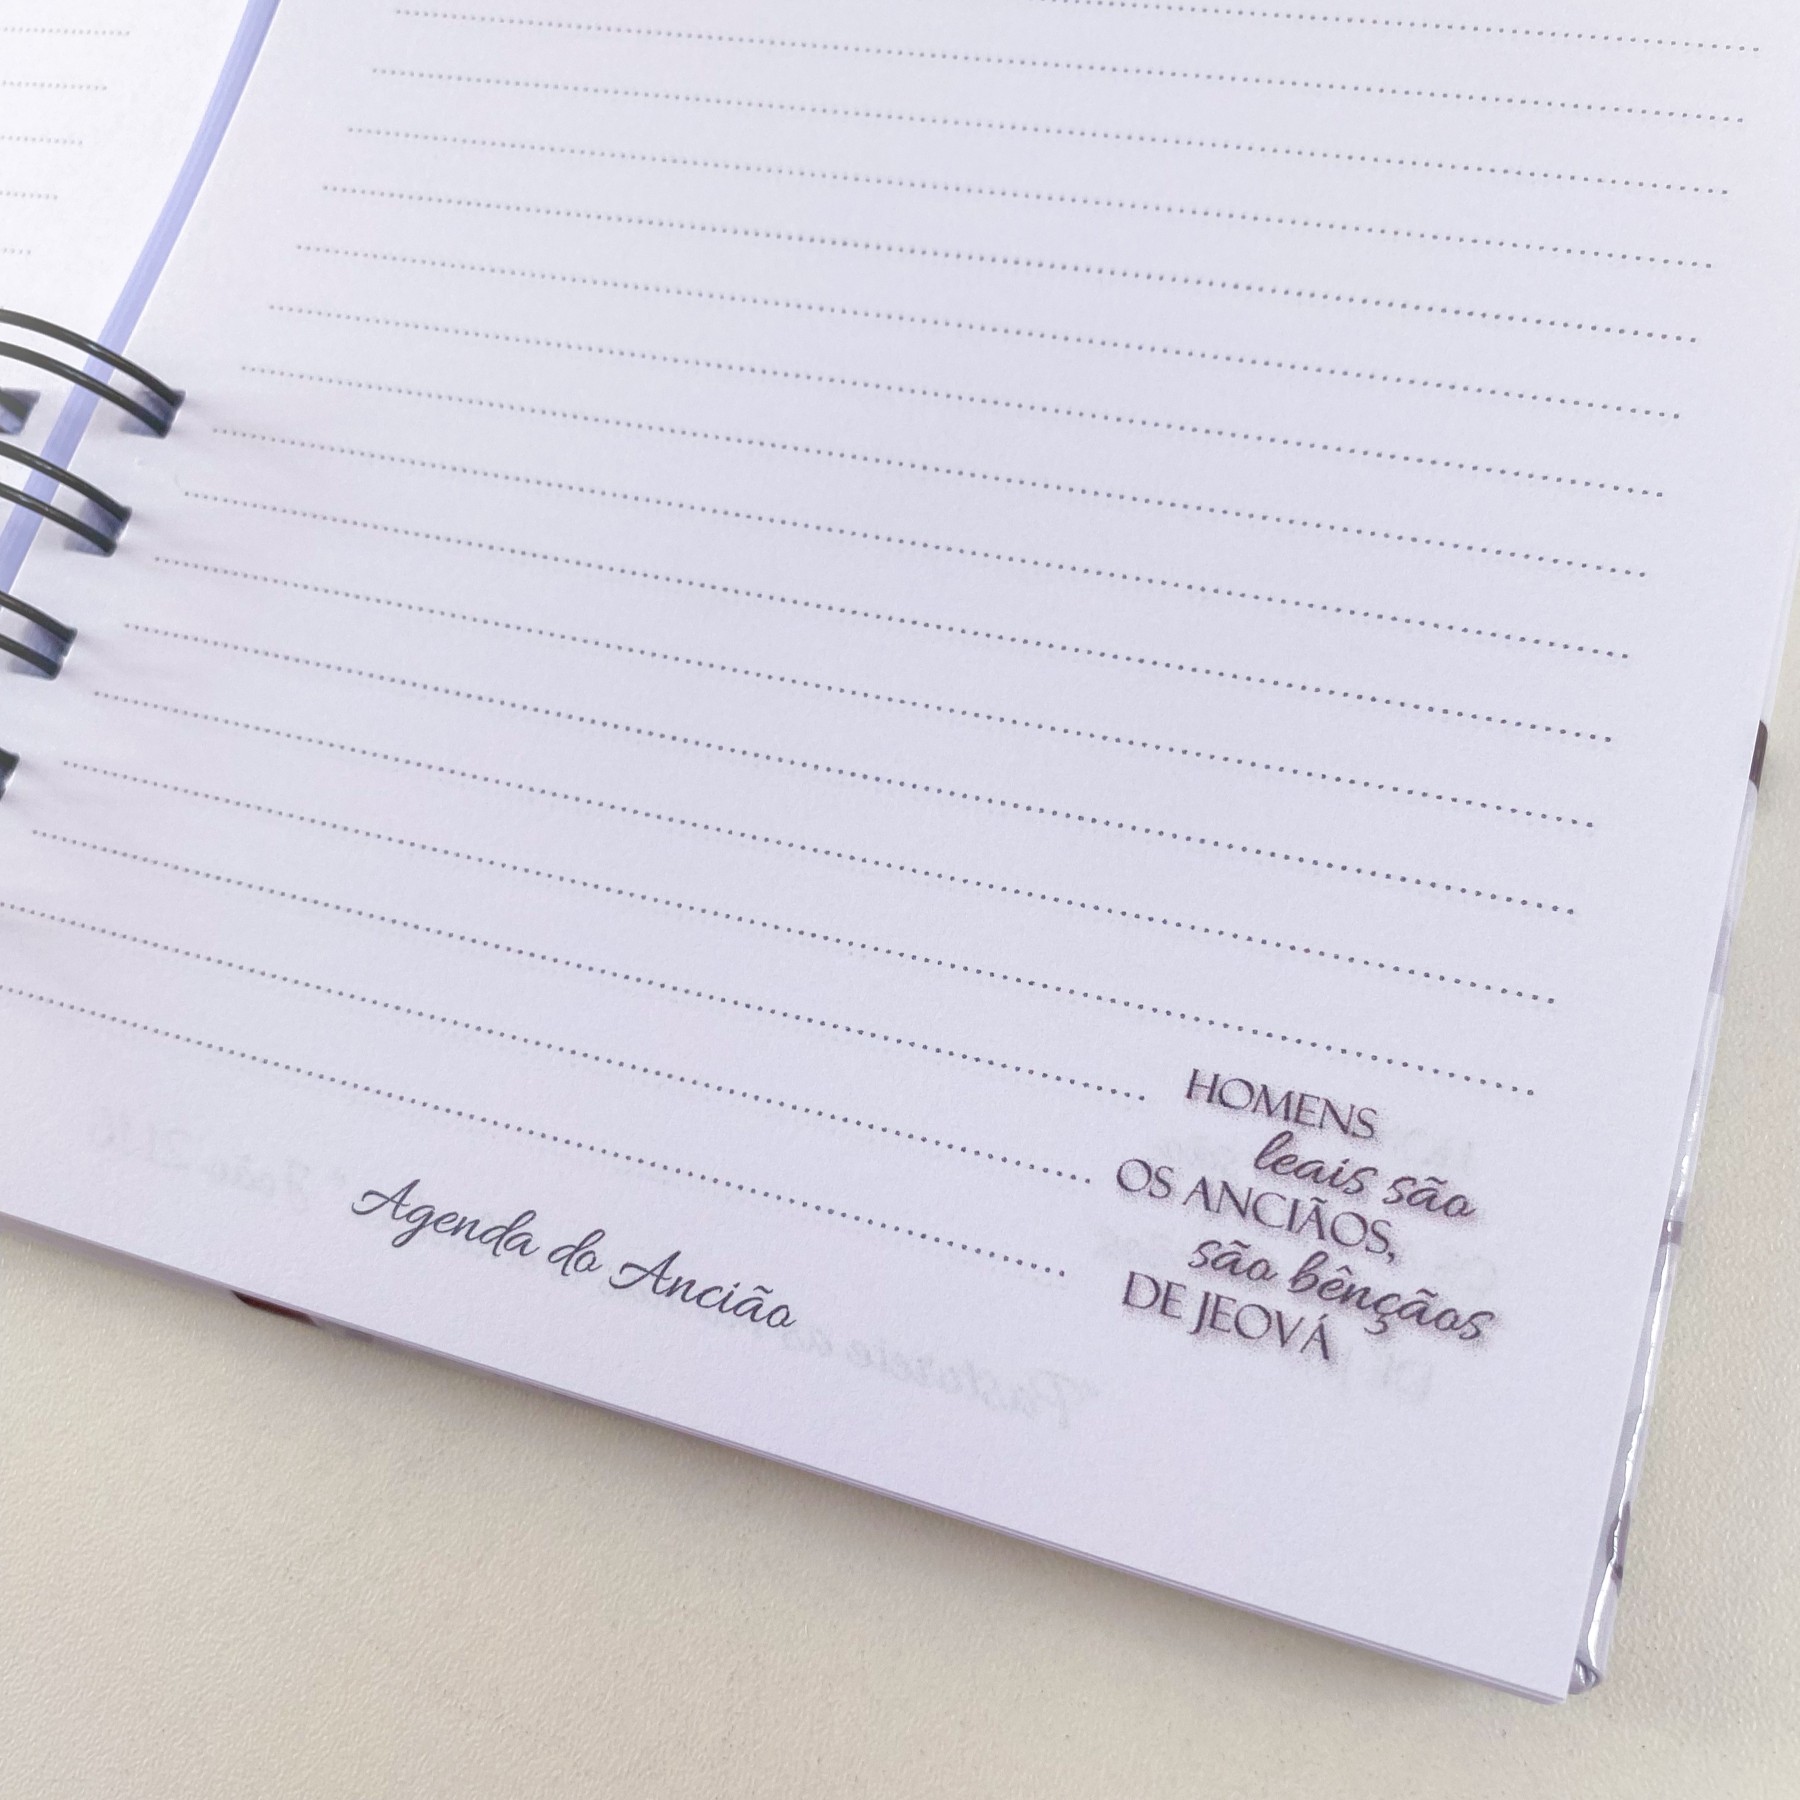 HOMENS
leais são
OS ANCIÃOS,
são bênçãos
DE JEOVÁ
Agenda do Ancião